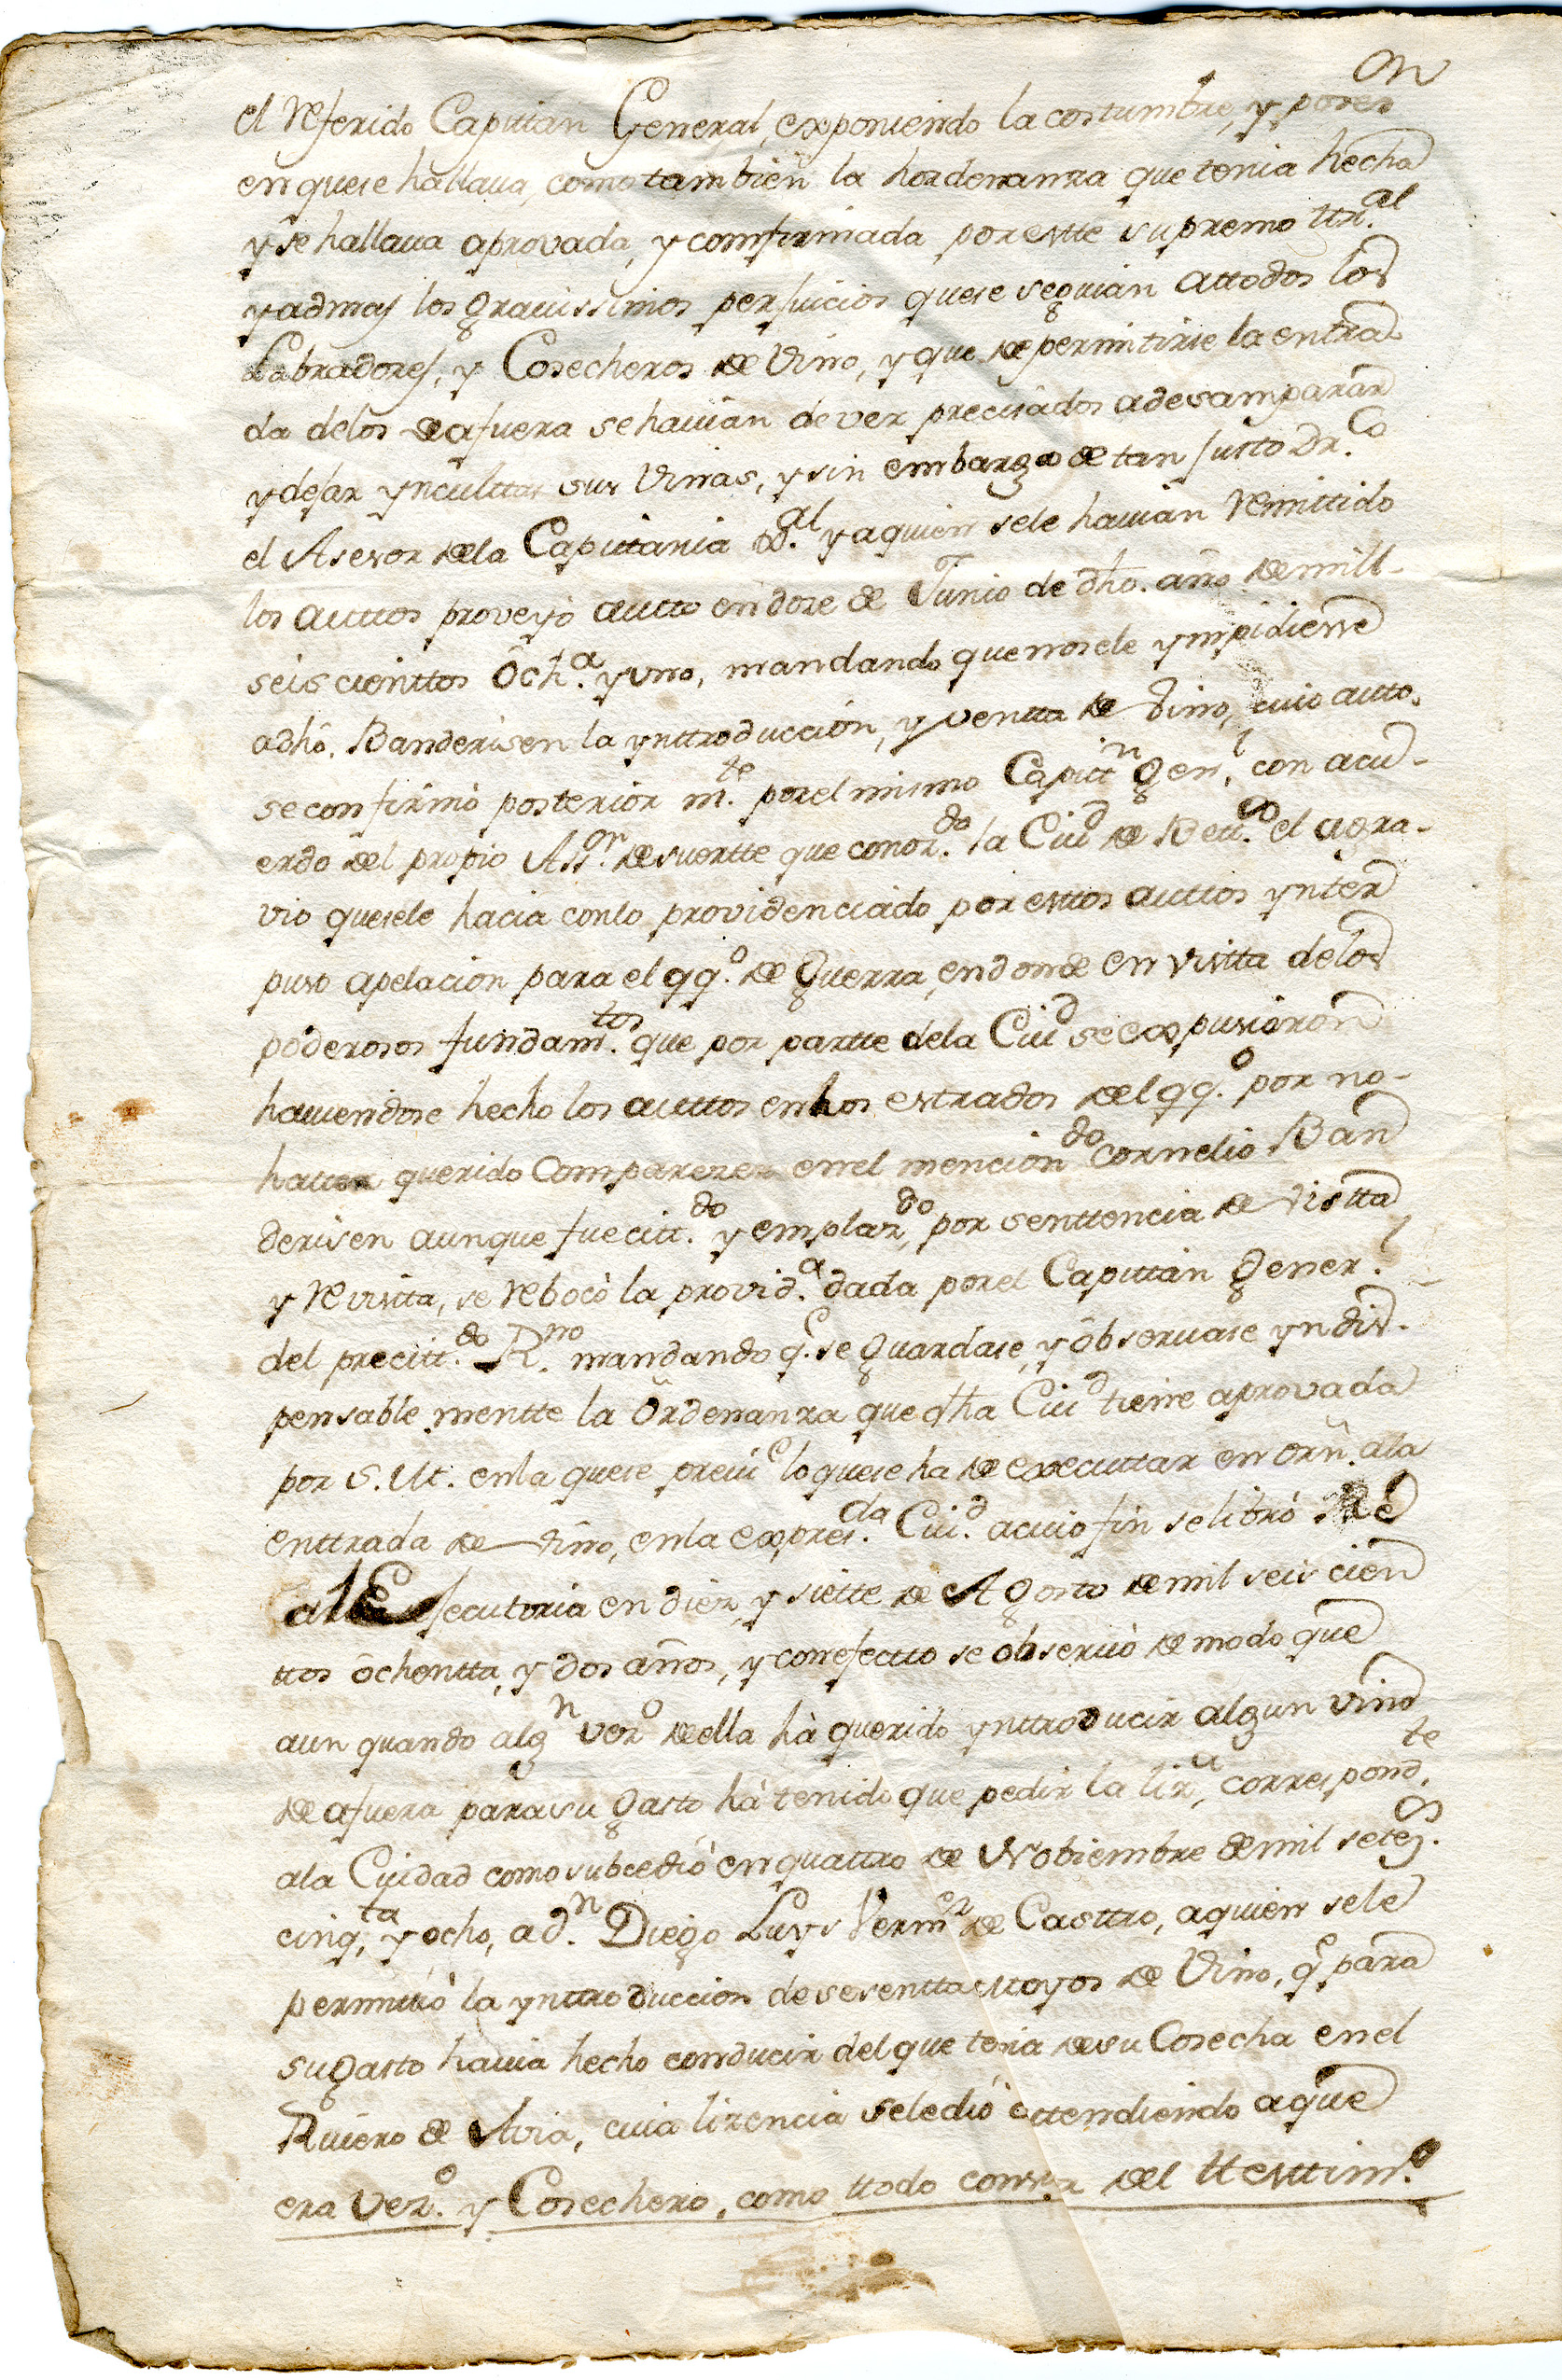 el referido Capittan General, exponiendo la costumbre, y poses.on
en que se hallaua, como tambien la hordenanza que tenia hecha
y se hallaua aprovada, y comfirmada por estte supremo ttri.al
y admas los grauissimos perjuicios que se seguian attodos los
Labradores, y Cosecheros de Vino, y que de permitirse la entra
da delos de afuera se hauian de ver precisados a desamparar
y dejar yncultas sus Viñas, y sin embargo de tan justo Dr.co
el Asesor dela Capittania G.al y aquien sele hauian remittido
los auttos proveyó autto en doze de Junio de dho. año de mill
seiscienttos Och.a y uno, mandando que no se le ympidiesse
adho. Banderisen la ynttroducción, y ventta de Vino, cuio autto
se confirmó posterior m.te por el mismo Capitt.n Gen.l con acu-
erdo del propio Ass.or de suertte que conoz.do la Ciu.d de Bett.os el agra-
vio que sele hacia conlo providenciado por esttos auttos ynter
puso apelacion para el qq.o de Guerra, en donde en vistta delos
poderosos fundam.tos que por partte dela Ciu.d se expusieron
hauiendose hecho los auttos en los estrados del qq.o por no
hauer querido Comparezer en el mencion.do Cornelio Ban
derisen aunque fue citt.do y emplaz.do, por senttencia de vistta
y revistta, se rebocó la provid.a dada por el Capittán Gener.l
del precitt.do R.no mandando q.e se guardase, y observase yndis-
pensable mentte la Ordenanza que dha Ciu.d tiene aprovada
por S. M. enla que se previe lo que se ha de executtar en orñ. ala
enttrada de Vino, enla expres.da Ciu.d acuio fin se libró Re
al Ejecutoria en diez, y siette de Agosto de mil seis cien
ttos ochentta, y dos años, y con efectto se observó de modo que
aun quando alg.n vez.o de ella há querido ynttroducir algun vino
de afuera para su gasto há tenido que pedir la liz.a correspond.te
ala Ciudad como subcedió en quattro de Nobiembre de mil setez.os
cinq.ta y ocho, a d.n Diego Luys Verm.z de Casttro, aquien sele
permittió la ynttroduccion de sesentta moyos de Vino, q.e para
su gasto hauia hecho conducir del que tenia de su Cosecha en el
Riuero de Avia, cuia lizencia se le dió attendiendo aque
era Vez.o y Cosechero, como ttodo consta del ttesttim.o